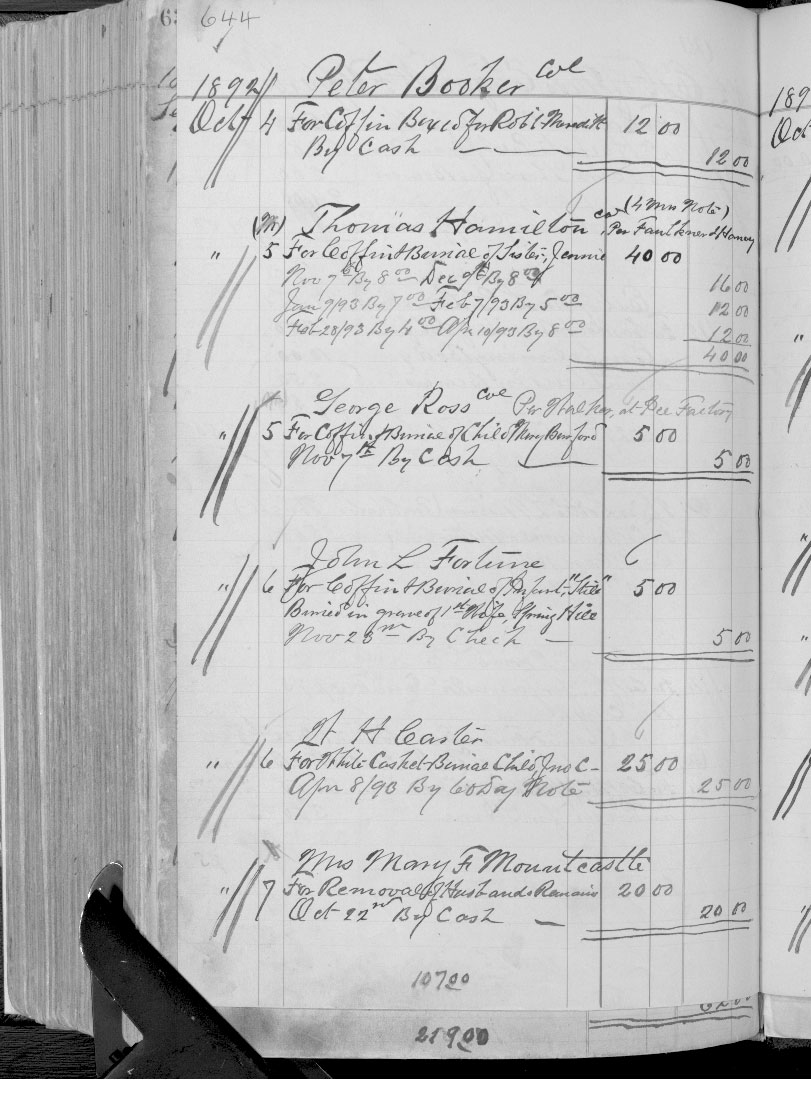 644
1892 Peter Booker col
Oct 4 For Coffin Box &c for Robt Meredith 12 00
By Cash 12 00
(4 Mos Note)
Thomas Hamilton col Per Faulkner & Haney
" 5 For Coffin & Burial of Sister, Jennie 40 00
Nov 7th By 8 00 Dec 9th By 8 00 16 00
Jan 9/93 By 7 00 Feb 7/93 By 5 00 12 00
Feb 28/93 By 4 00 Apr 10/93 By 8 00 12 00
40 00
George Ross col Per Walker, at Factory
" 5 For Coffin & Burial of Child Mary Burford 5 00
Nov 7th By Cash 5 00
John L Fortune
" 6 For Coffin & Burial of Infant, "Still" 5 00
Buried in grave of 1st Wife, Spring Hill
Nov 23rd By Check 5 00
W H Caster
" 6 For White Casket Burial Child Jno C - 25 00
Apr 8/93 By 60 Day Note 25 00
Mrs Mary F Mountcastle
" 7 For Removal of Husbands Remains 20 00
Oct 22nd By Cash 20 00
107 00
219 00
189
Oct